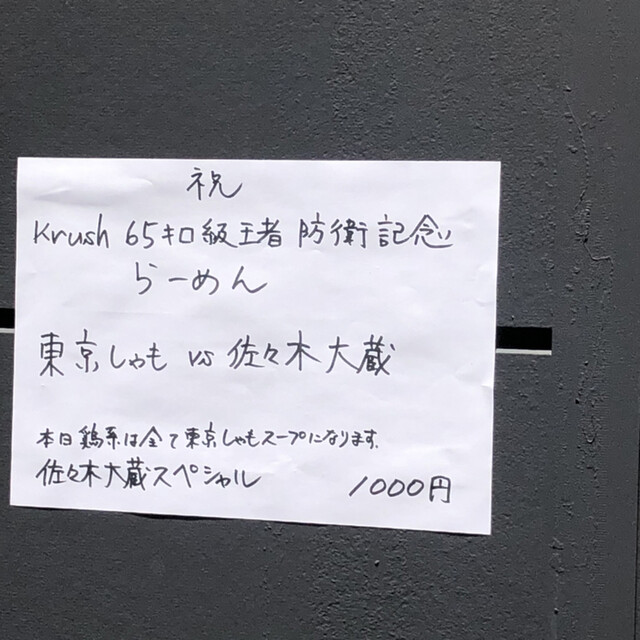 祝
Krush 65キロ級王者 防衛記念
らーめん
東京しゃも vs 佐々木大蔵
本日鶏系は全て東京しゃもスープになります。
佐々木大蔵スペシャル 1000円